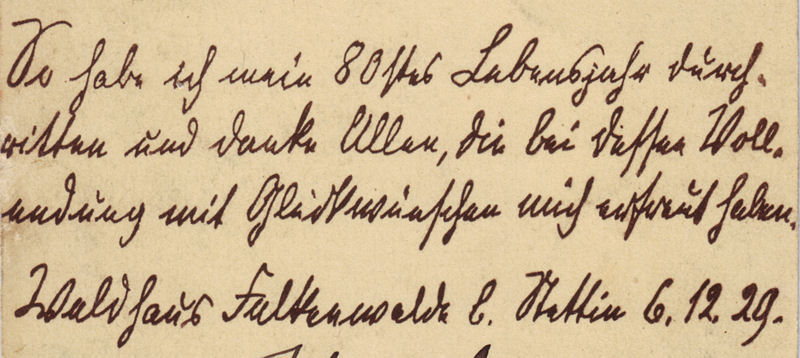 So habe ich mein 80stes Lebensjahr durch-
ritten und danke Allen, die bei dessen Voll-
endung mit Glückwünschen mich erfreut haben.
Waldhaus Falkenwalde b. Stettin 6.12.29.